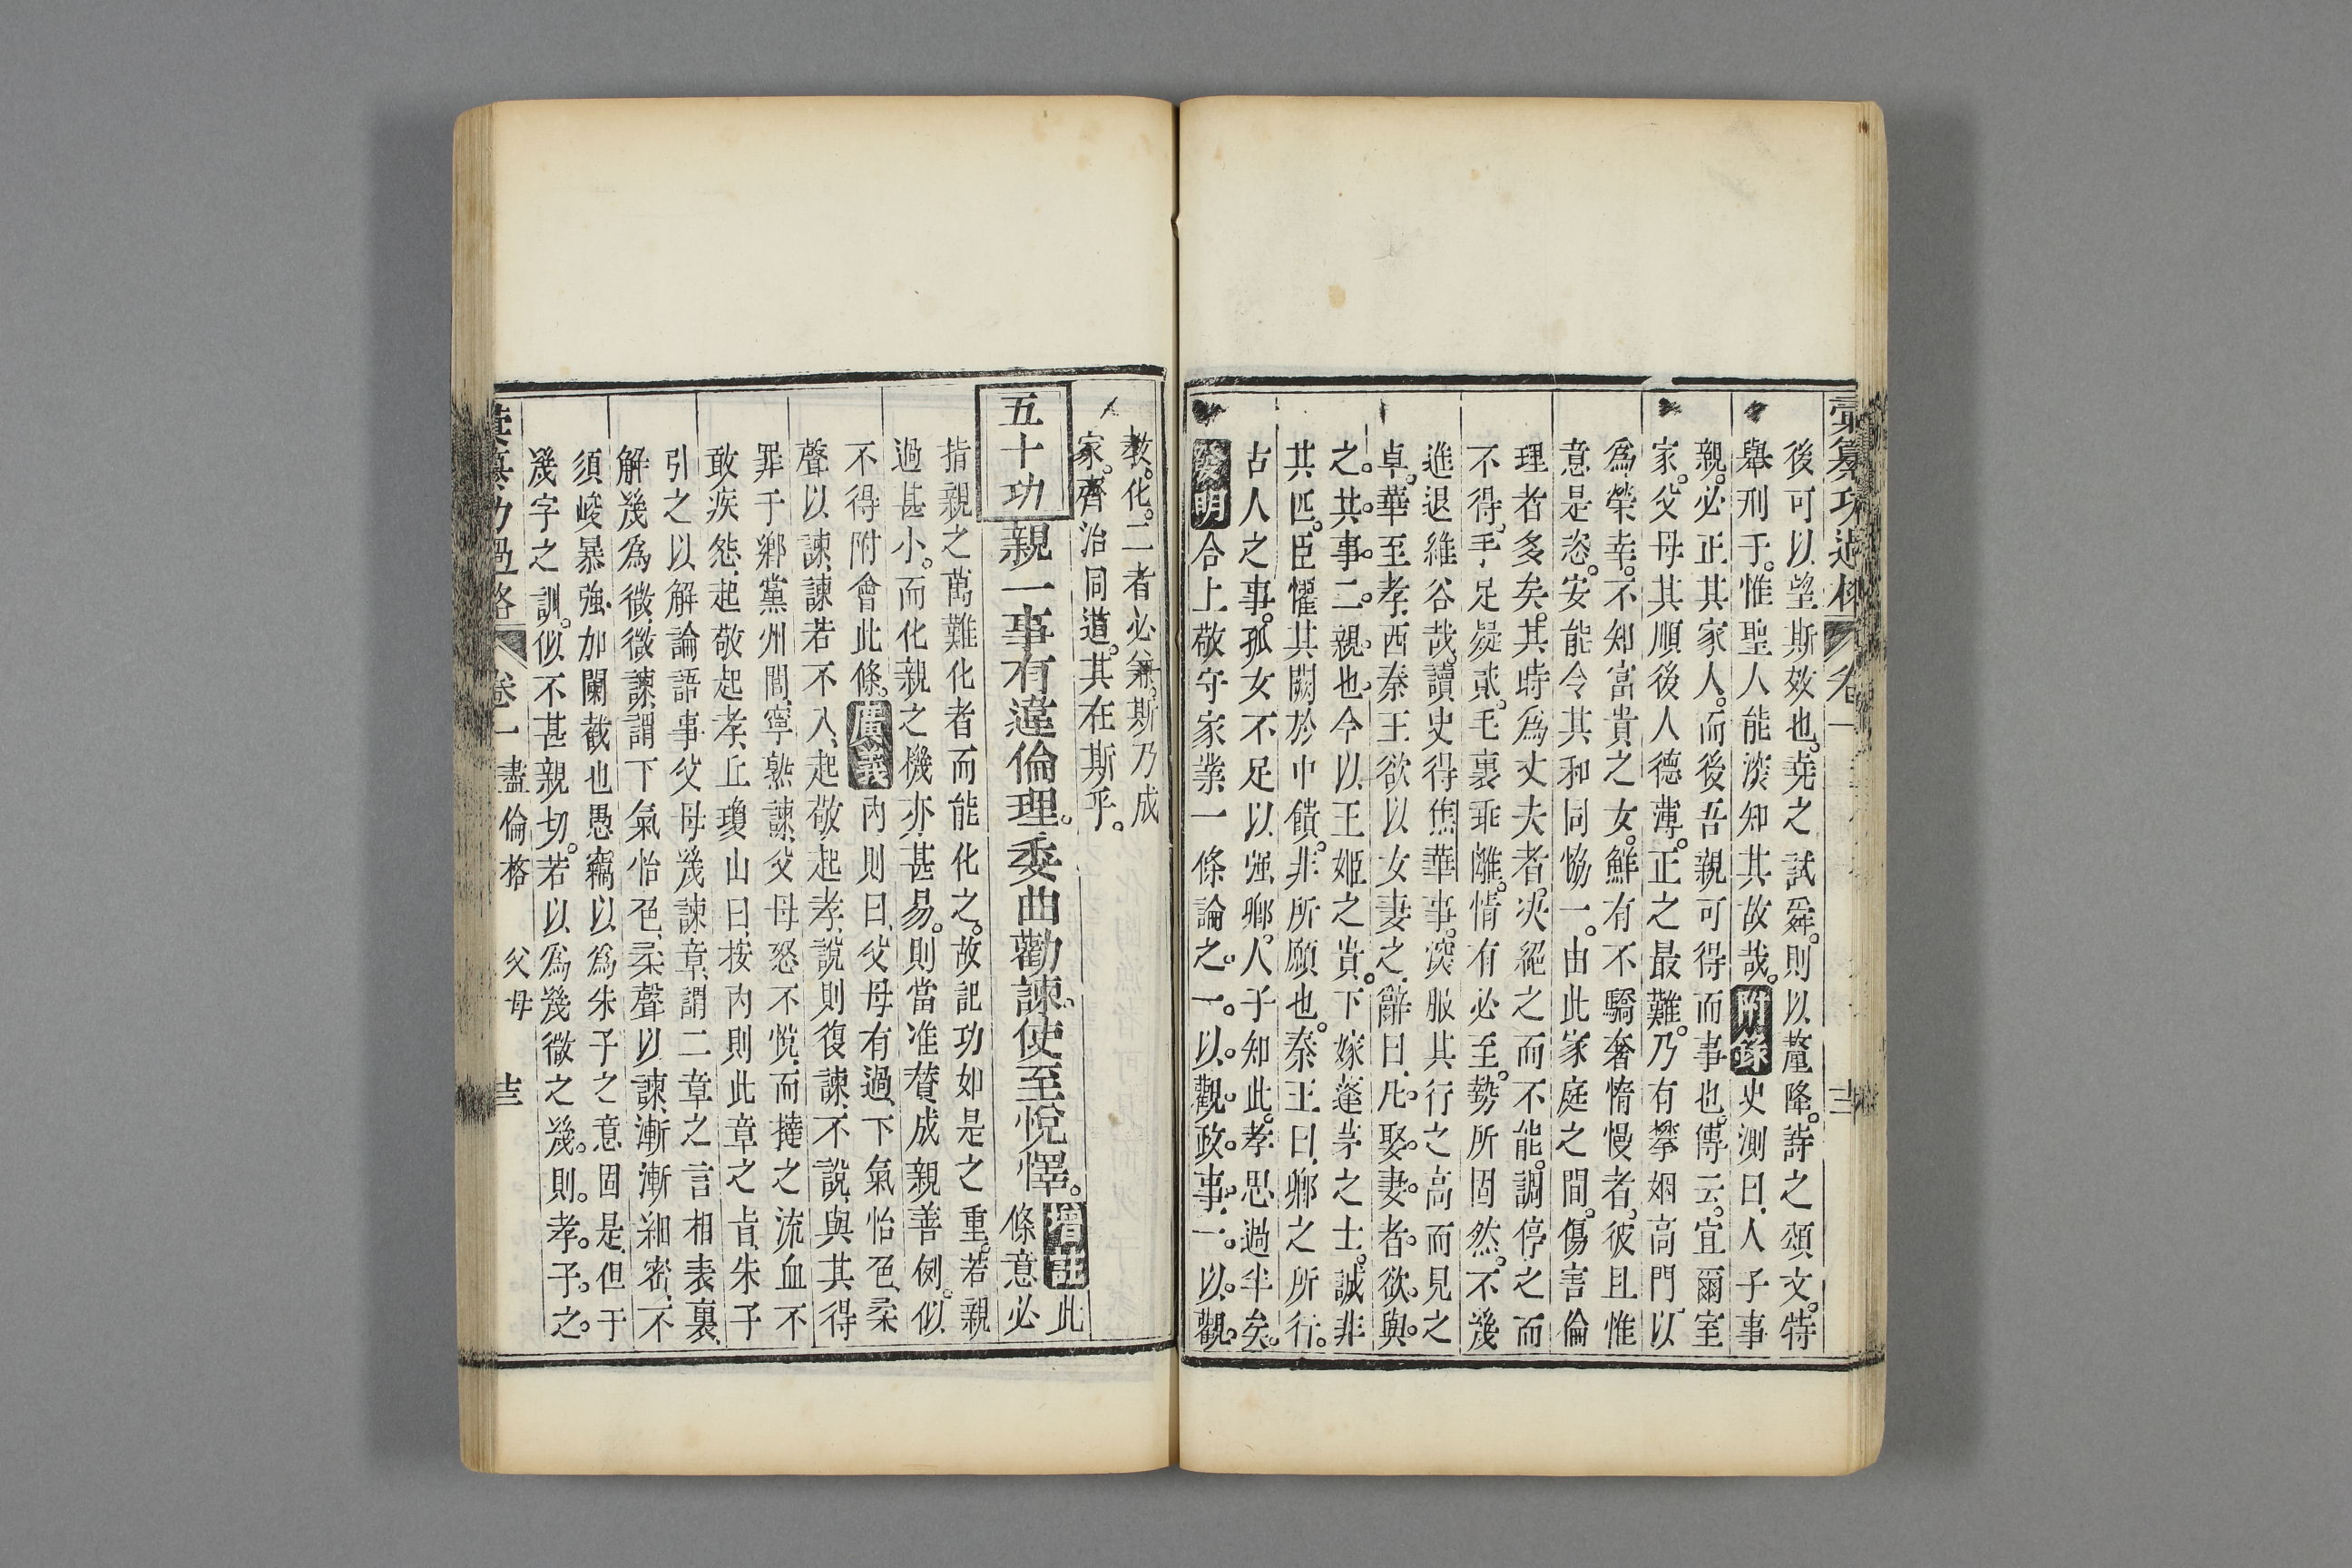 彙纂功過格 卷一
後可以望斯效也。堯之試舜。則以釐降。詩之頌文。特
舉刑于。惟聖人能深知其故哉。附錄史測曰、人子事
親。必正其家人。而後吾親可得而事也。傳云。宜爾室
家。父母其順後人德薄。正之最難。乃有攀姻高門以
爲榮幸。不知富貴之女。鮮有不驕奢惰慢者。彼且惟
意是恣。安能令其和同恊一。由此家庭之間。傷害倫
理者多矣。其時爲丈夫者。決絕之而不能。調停之而
不得。手足疑貳。毛裏乖離。情有必至。勢所固然。不幾
進退維谷哉。讀史得焦華事。深服其行之高而見之
卓。華至孝、西秦王欲以女妻之、辭曰、凡娶妻者。欲與
之。其事。二親。也。今以王姬之貴。下嫁蓬茅之士。誠非
其匹。臣懼其闕於中饋。非所願也。秦王曰、鄉之所行。
古人之事。孤女不足以强鄉。人子知此。孝思過半矣。
發明合上敬守家業一條論之。一。以。觀。政。事。一。以。觀。
教。化。二者必兼。斯乃成
家。齊治同道。其在斯乎。
五十功親一事有違倫理。委曲勸諫。使至悅懌。增註此
條意必
指親之萬難化者而能化之。故記功如是之重。若親
過甚小。而化親之機亦甚易。則當准贊成親善例。似
不得附會此條。廣義內則曰、父母有過、下氣怡色、柔
聲以諫、諫若不入、起敬起孝、說則復諫、不說、與其得
罪于鄉黨州閭、寧熟諫、父母怒不悅、而撻之流血不
敢疾怨、起敬起孝、丘瓊山曰、按內則此章之旨、朱子
引之以解論語事父母幾諫章、謂二章之言相表裏、
解幾爲微、微諫、謂下氣怡色、柔聲以諫、漸漸細密、不
須峻暴強加闌截也愚竊以爲朱子之意固是、但于
幾字之訓。似不甚親切。若以爲幾微之幾。則。孝。子。之。
卷一 盡倫格 父母 十三